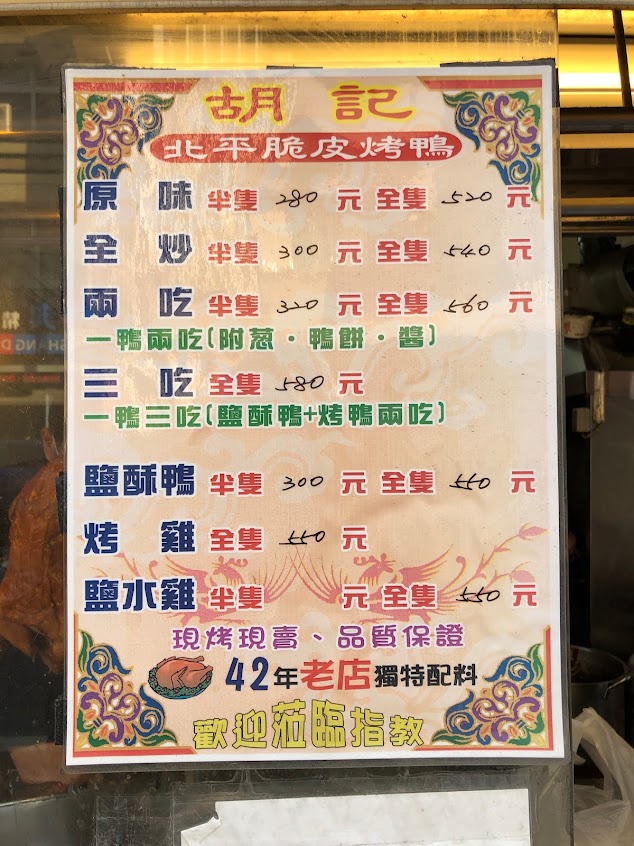 胡記
北平脆皮烤鴨
原味 半隻 280 元 全隻 520 元
全炒 半隻 300 元 全隻 540 元
兩吃 半隻 320 元 全隻 560 元
一鴨兩吃(附蔥・鴨餅・醬)
三吃 全隻 580 元
一鴨三吃(鹽酥鴨+烤鴨兩吃)
鹽酥鴨 半隻 300 元 全隻 550 元
烤雞 全隻 550 元
鹽水雞 半隻 元 全隻 550 元
現烤現賣、品質保證
42年老店獨特配料
歡迎蒞臨指教